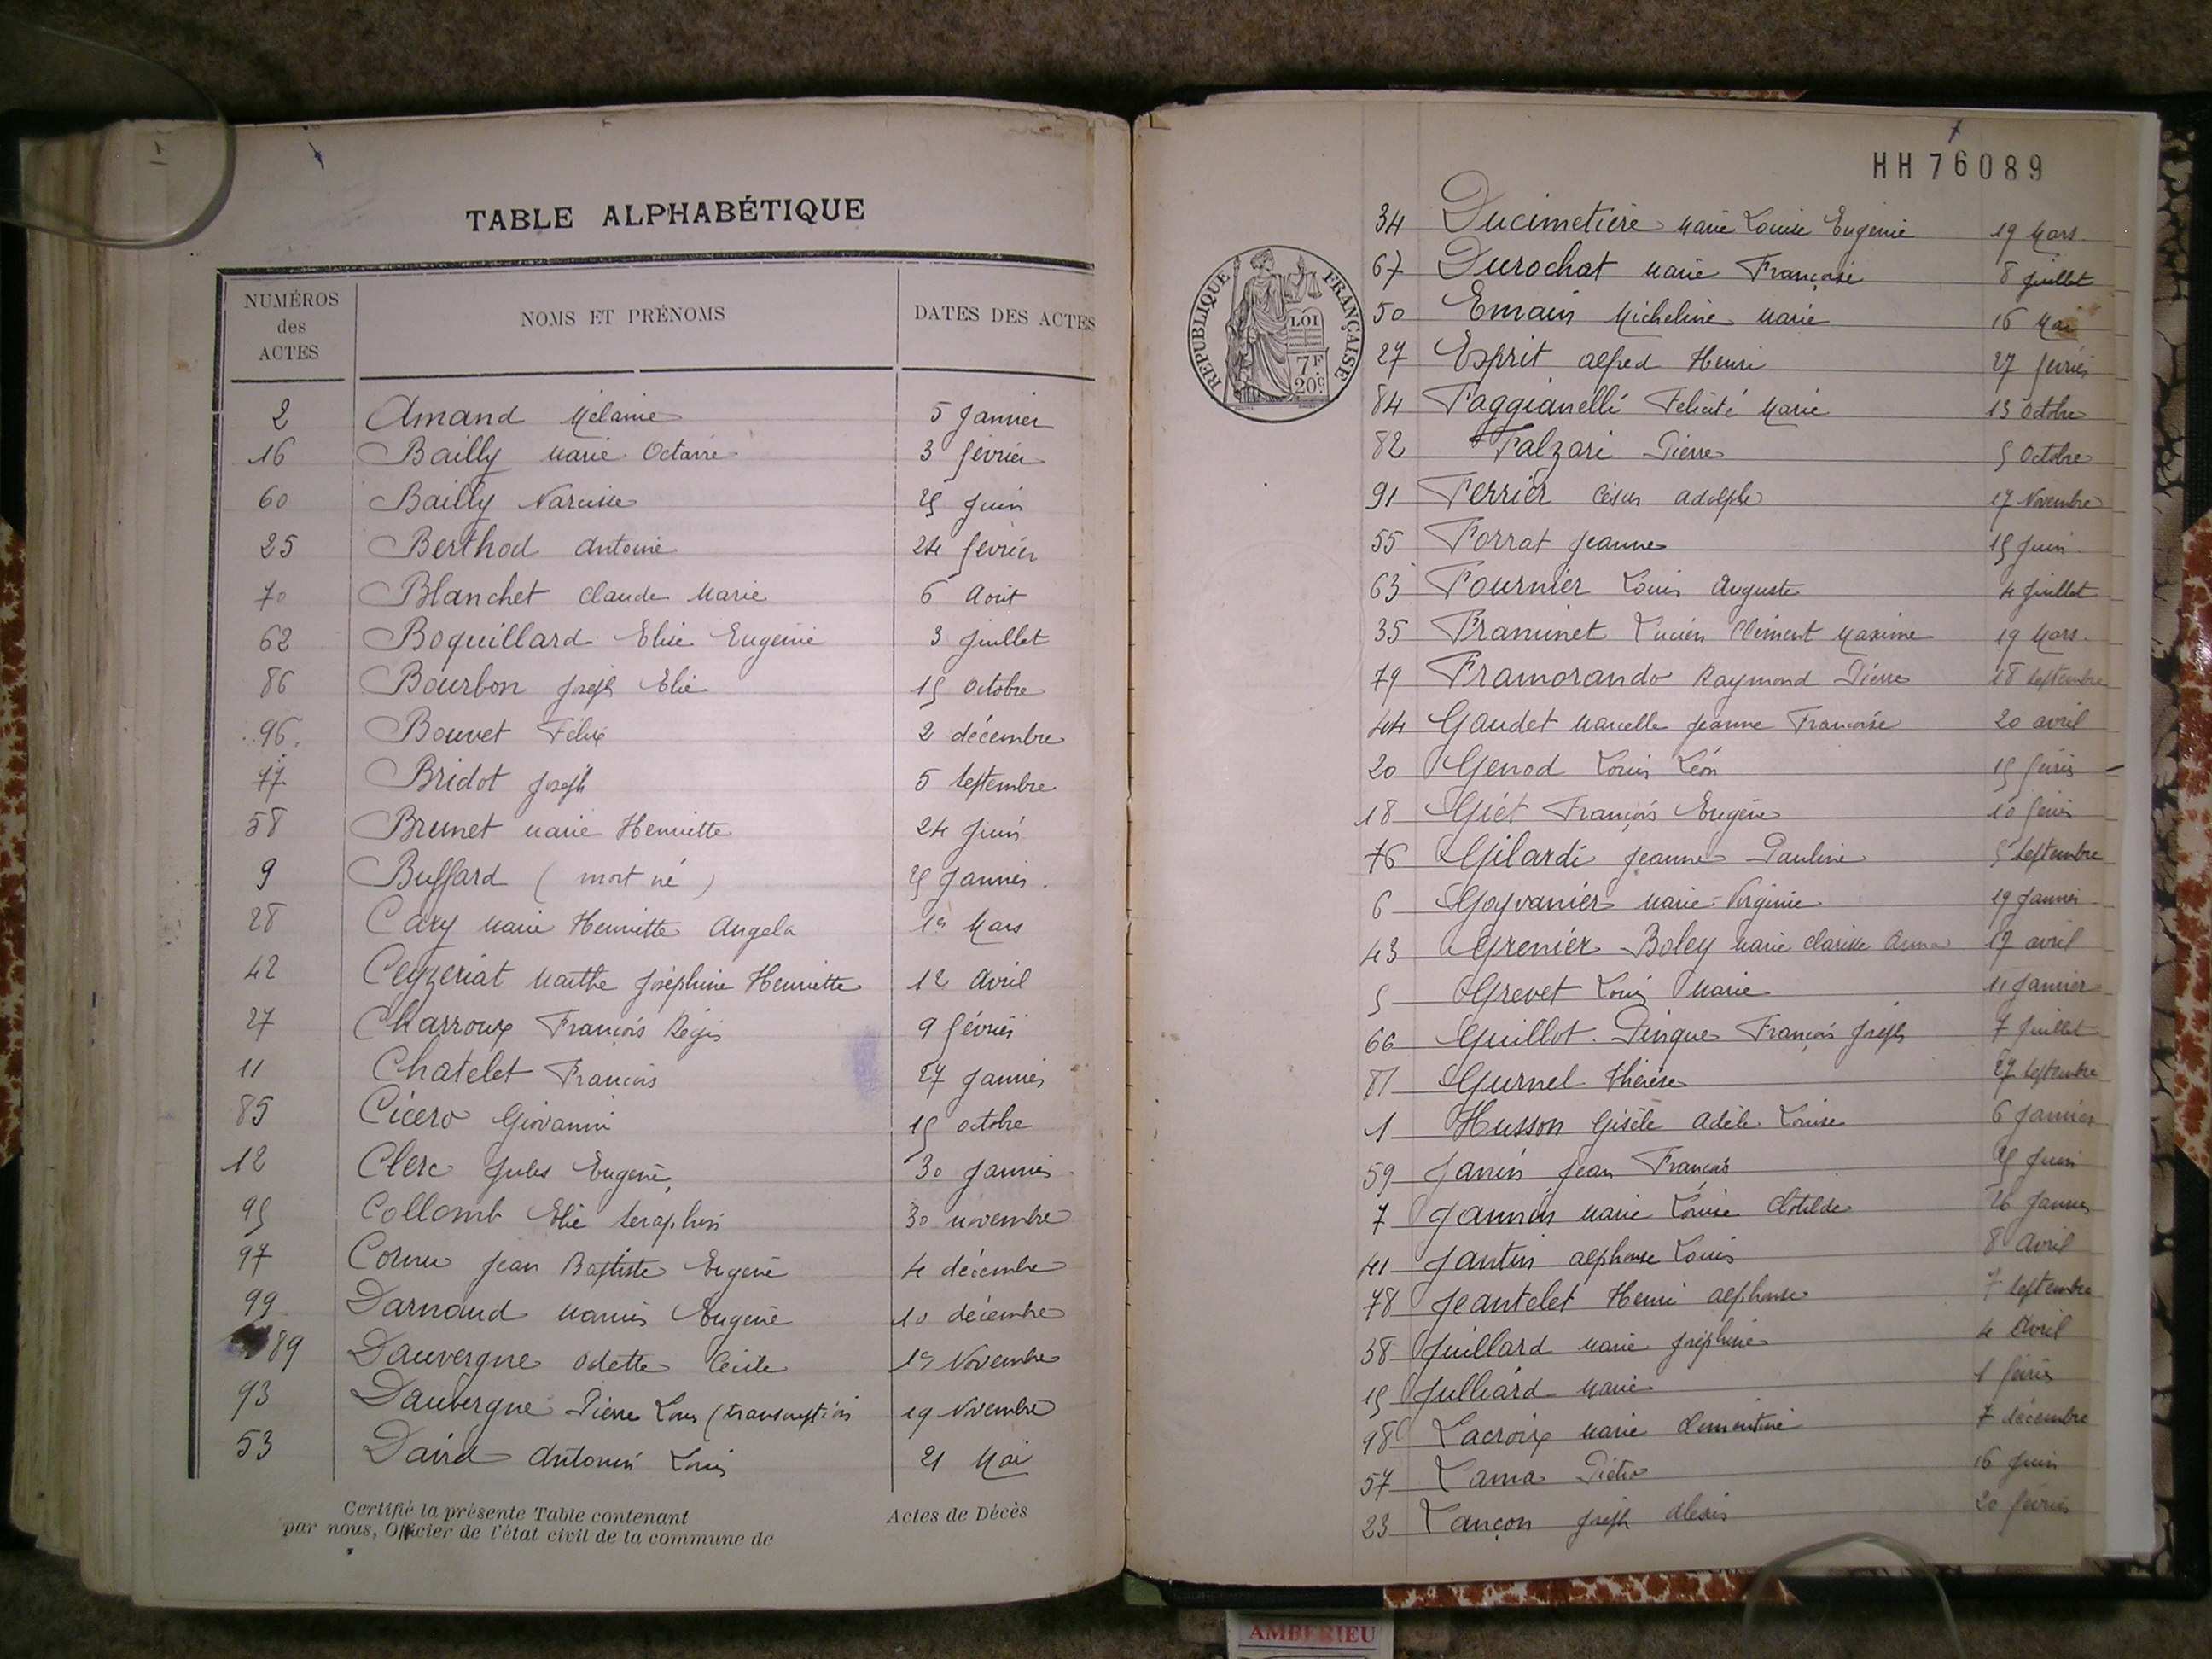 TABLE ALPHABÉTIQUE
NUMÉROS des ACTES NOMS ET PRÉNOMS DATES DES ACTES
2 Amand Mélanie 5 Janvier
16 Bailly Marie Octavie 3 février
60 Bailly Narcisse 25 Juin
25 Berthod Antoine 24 février
70 Blanchet Claude Marie 6 Aout
62 Boquillard Elie Eugenie 3 Juillet
86 Bourbon Joseph Elie 15 octobre
96 Bouvet Félix 2 décembre
77 Bridot Joseph 5 Septembre
58 Brunet Marie Henriette 24 Juin
9 Buffard (mort né) 25 Janvier
28 Cary Marie Henriette Angela 1er Mars
42 Ceyzeriat Marthe Joséphine Henriette 12 Avril
27 Charroux François Régis 9 février
11 Chatelet François 27 Janvier
85 Cicero Giovanni 15 octobre
12 Clerc Jules Eugène 30 Janvier
95 Collomb Elie Seraphin 30 novembre
97 Cornu Jean Baptiste Eugène 4 décembre
99 Darnand Marius Eugène 10 décembre
89 Dauvergne Odette Cécile 15 Novembre
93 Dauvergne Pierre Louis (transcription 19 Novembre
53 David Antonin Louis 21 Mai
Certifié la présente Table contenant Actes de Décès
par nous, Officier de l'état civil de la commune de
HH 76089
RÉPUBLIQUE FRANÇAISE
LOI
7F.
20c
34 Ducimetière Marie Louise Eugénie 19 Mars
67 Durochat Marie Françoise 8 Juillet
50 Emain Micheline Marie 16 Mai
27 Esprit Alfred Henri 27 février
84 Faggianelli Félicité Marie 13 Octobre
82 Falzari Pierre 5 Octobre
91 Ferrier César Adolphe 17 Novembre
55 Forrat Jeanne 15 Juin
63 Fournier Louis Auguste 4 Juillet
35 Framinet Lucien Clément Maxime 19 Mars
79 Framorando Raymond Pierre 18 Septembre
44 Gaudet Marcelle Jeanne Françoise 20 avril
20 Genod Louis Léon 15 février
18 Giet François Eugène 10 février
76 Gilardi Jeanne Pauline 5 Septembre
6 Goyvanier Marie Virginie 19 Janvier
43 Grenier-Boley Marie Clarisse 17 avril
5 Grevet Louis Marie 11 Janvier
66 Guillot-Pingue François Joseph 7 Juillet
81 Gurnel Thérèse 27 Septembre
1 Husson Gisèle Adèle Louise 6 Janvier
59 Janin Jean François 25 Juin
7 Jannin Marie Louise Clotilde 26 Janvier
41 Jantin Alphonse Louis 8 Avril
78 Jeantelet Henri Alphonse 7 Septembre
38 Juillard Marie Joséphine 4 Avril
15 Julliard Marie 1 février
98 Lacroix Marie Clementine 7 décembre
57 Lama Pietro 16 Juin
23 Lançon Joseph Alexis 20 février
AMBERIEU